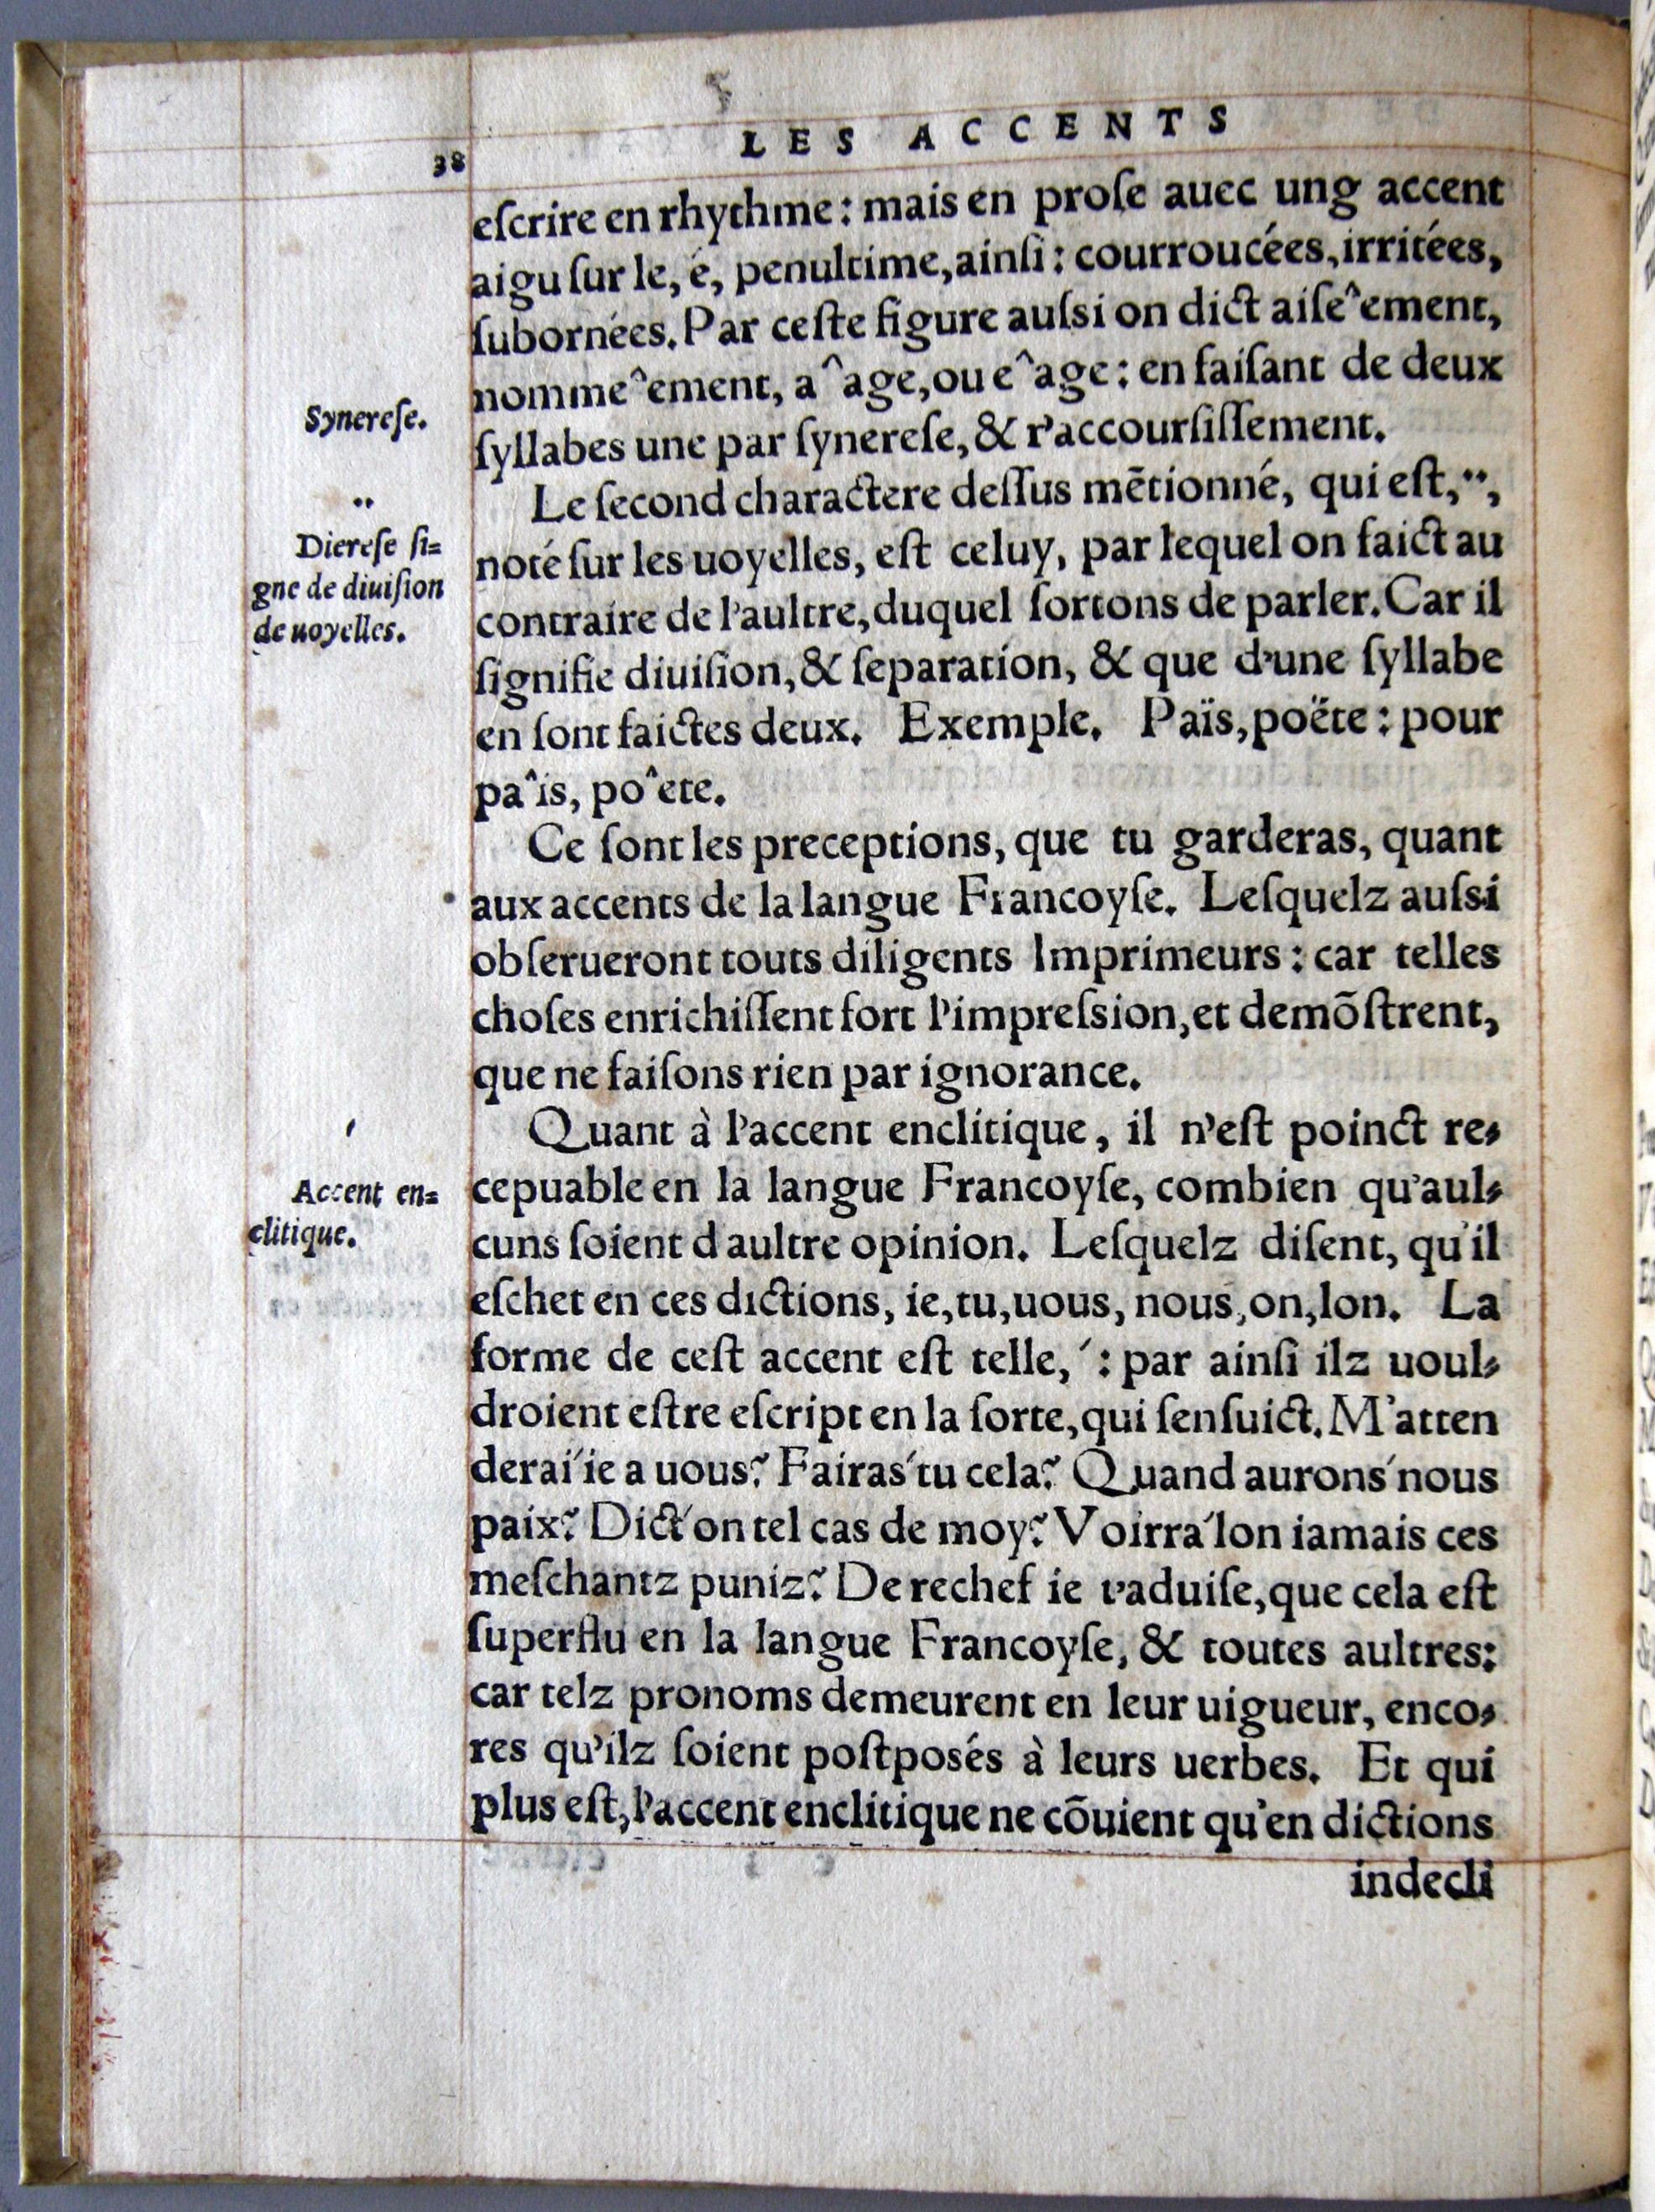 LES ACCENTS
38
eſcrire en rhythme: mais en proſe auec ung accent
aigu ſur le, é, penultime, ainſi: courroucées, irritées,
ſubornées. Par ceſte figure auſsi on dict aiſe^ement,
nomme^ement, a^age, ou e^age: en faiſant de deux
Synereſe.
ſyllabes une par ſynereſe, & r'accourſiſſement.
Le ſecond charactere deſſus mētionné, qui eſt, ¨,
¨
Diereſe ſi=
gne de diuiſion
de uoyelles.
noté ſur les uoyelles, eſt celuy, par lequel on faict au
contraire de l'aultre, duquel ſortons de parler. Car il
ſignifie diuiſion, & ſeparation, & que d'une ſyllabe
en ſont faictes deux. Exemple. Païs, poëte: pour
pa^is, po^ete.
Ce ſont les preceptions, que tu garderas, quant
aux accents de la langue Francoyſe. Leſquelz auſsi
obſerueront touts diligents Imprimeurs: car telles
choſes enrichiſſent fort l'impreſsion, et demõſtrent,
que ne faiſons rien par ignorance.
Quant à l'accent enclitique, il n'eſt poinct re-
´
Accent en=
clitique.
cepuable en la langue Francoyſe, combien qu'aul-
cuns ſoient d aultre opinion. Leſquelz diſent, qu'il
eſchet en ces dictions, ie, tu, uous, nous, on, lon. La
forme de ceſt accent eſt telle, ´: par ainſi ilz uoul-
droient eſtre eſcript en la ſorte, qui ſenſuict. M'atten
derai´ie a uous? Fairas´tu cela? Quand aurons´nous
paix? Dict´on tel cas de moy? Voirra´lon iamais ces
meſchantz puniz? De rechef ie t'aduiſe, que cela eſt
ſuperflu en la langue Francoyſe, & toutes aultres:
car telz pronoms demeurent en leur uigueur, enco-
res qu'ilz ſoient poſtposés à leurs uerbes. Et qui
plus eſt, l'accent enclitique ne cõuient qu'en dictions
indecli